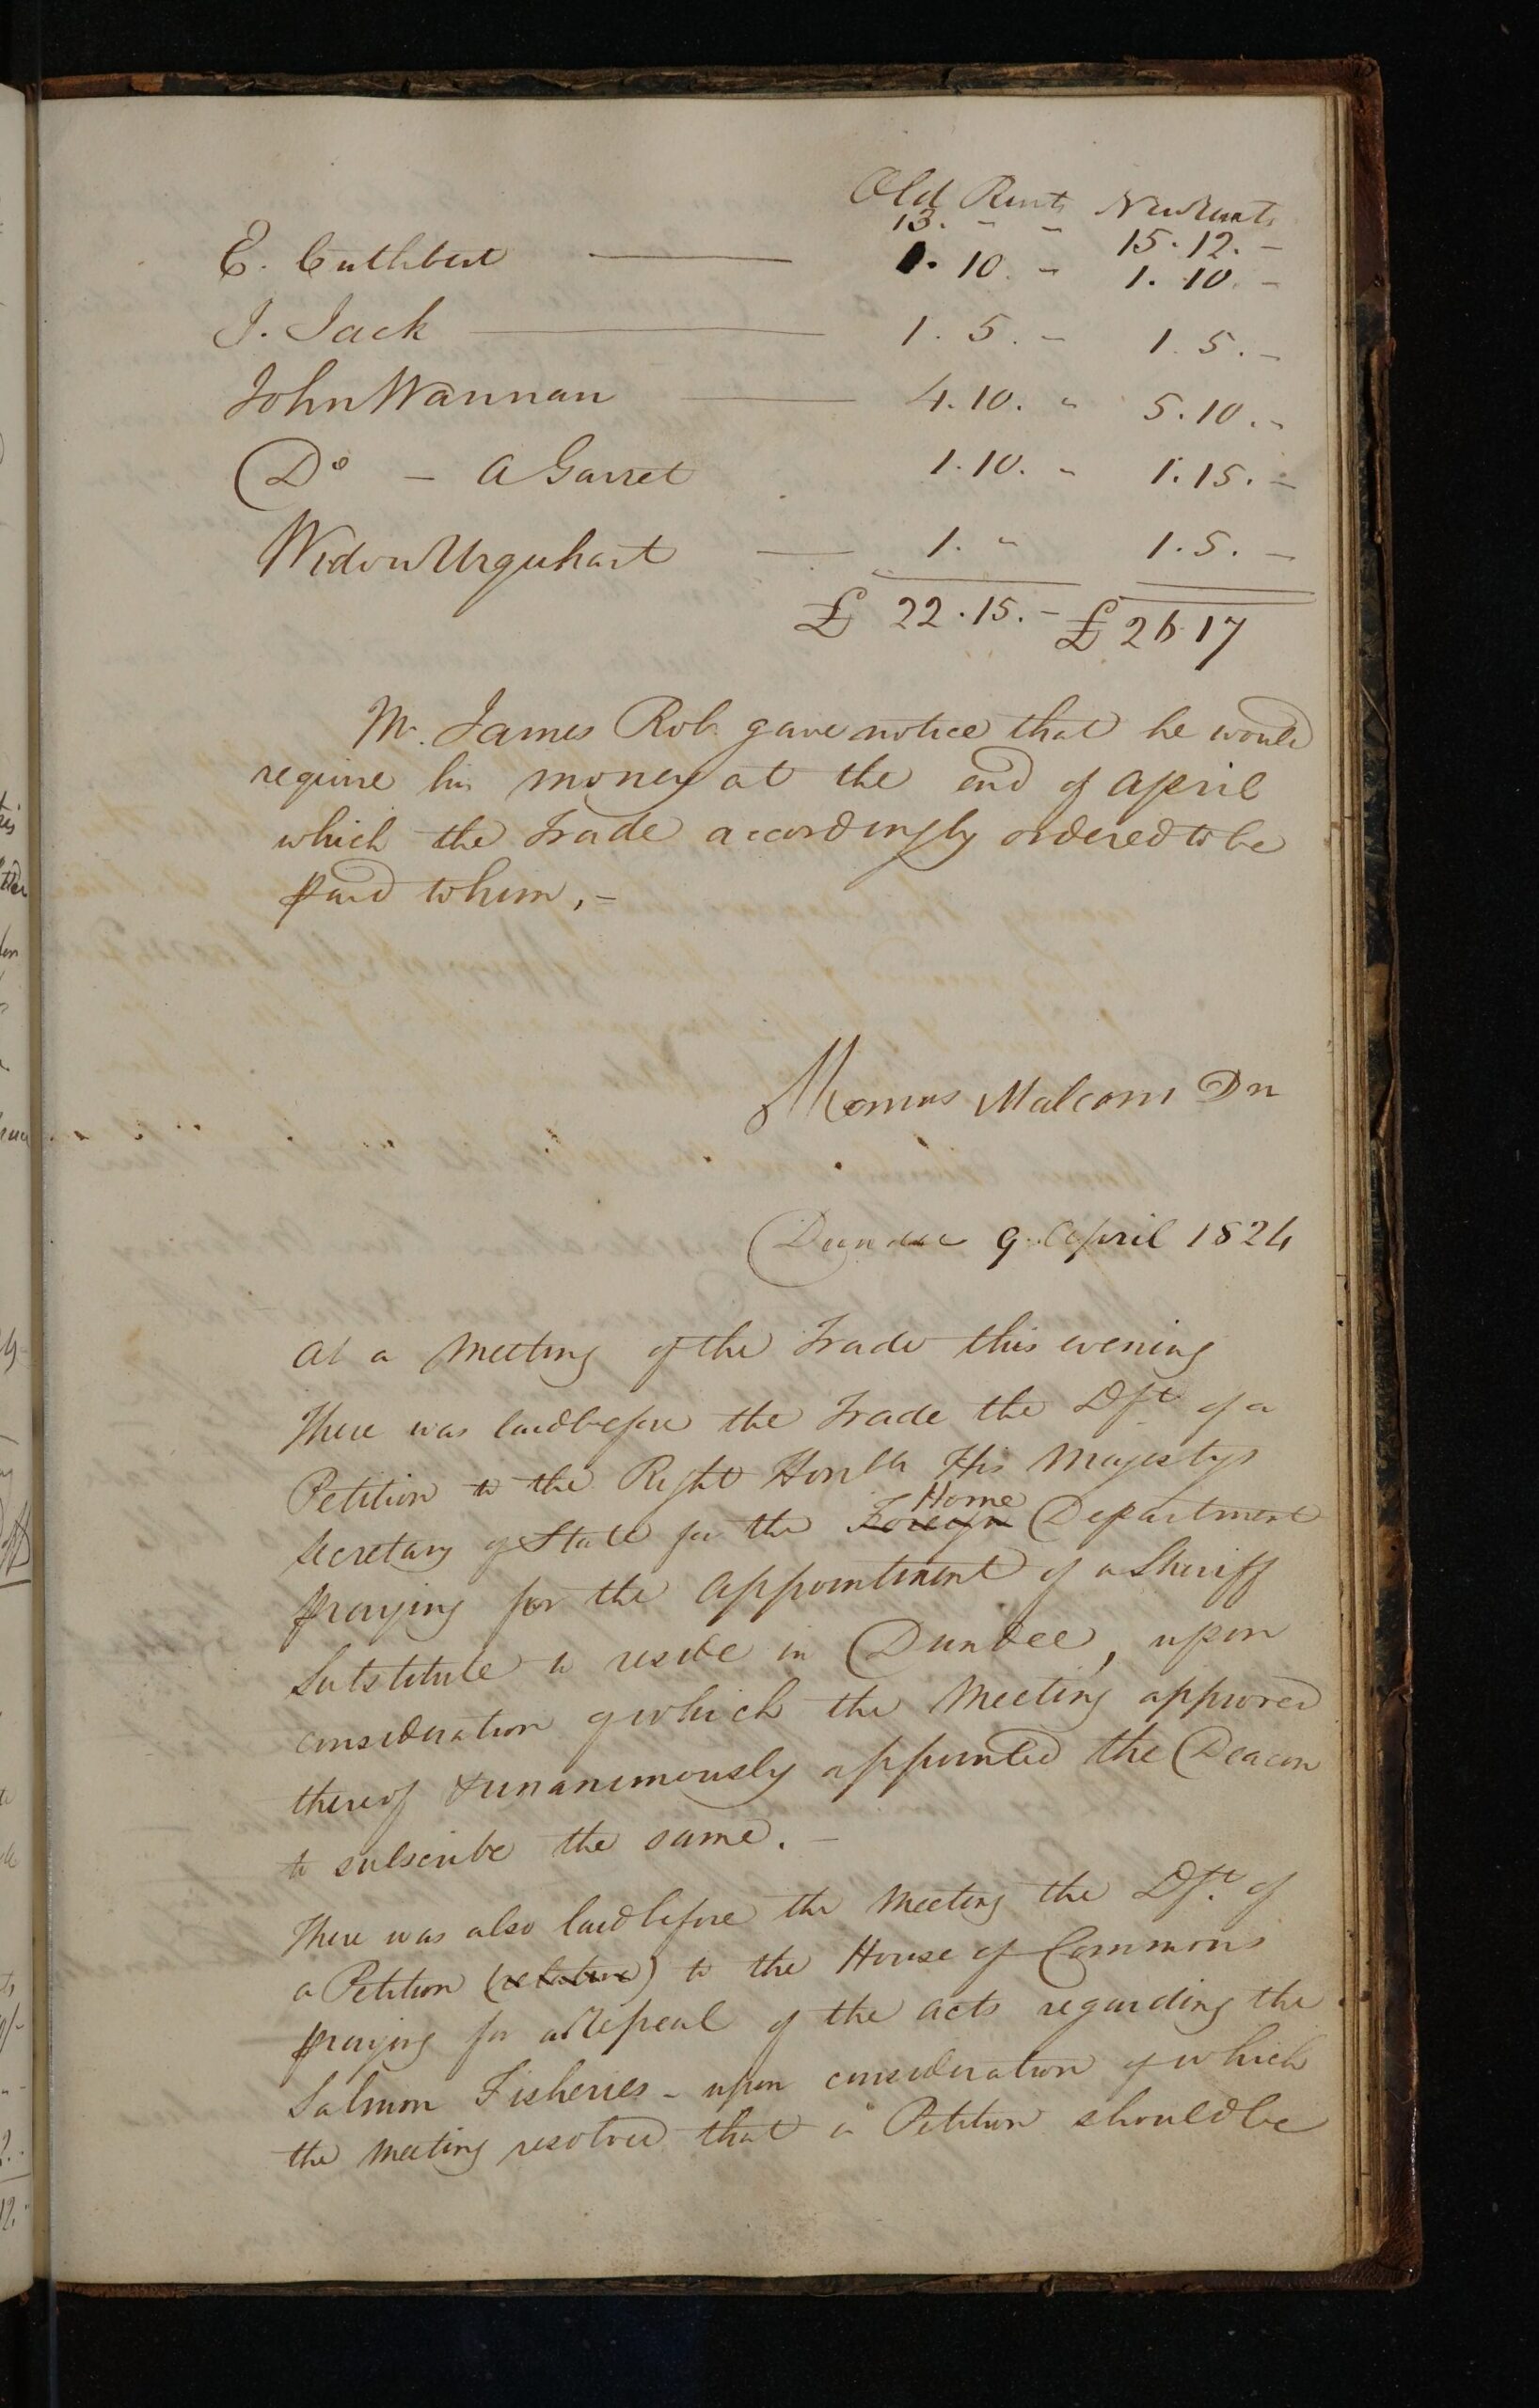 Old Rents New Rents
13. - - 15. 12. -
E. Cuthbert 1. 10. - 1. 10. -
J. Jack 1. 5. - 1. 5. -
John Wannan 4. 10. " 5. 10. -
Do - A Garret 1. 10. - 1. 15. -
Widow Urquhart 1. " 1. 5. -
£ 22. 15. - £ 26. 17
Mr. James Rob gave notice that he would
require his money at the end of April
which the Trade accordingly ordered to be
paid to him, -
Thomas Malcom Dn
Dundee 9 April 1824
At a Meeting of the Trade this evening
There was laid before the Trade the Dft of a
Petition to the Right Honble His Majestys
Home
Secretary of State for the Foreign Department
praying for the appointment of a Sheriff
Substitute to reside in Dundee, upon
consideration of which the Meeting approved
thereof & unanimously appointed the Deacon
to subscribe the same. -
There was also laid before the Meeting the Dft. of
a Petition (relative) to the House of Commons
praying for a Repeal of the acts regarding the
Salmon Fisheries - upon consideration of which
the Meeting resolved that a Petition should be